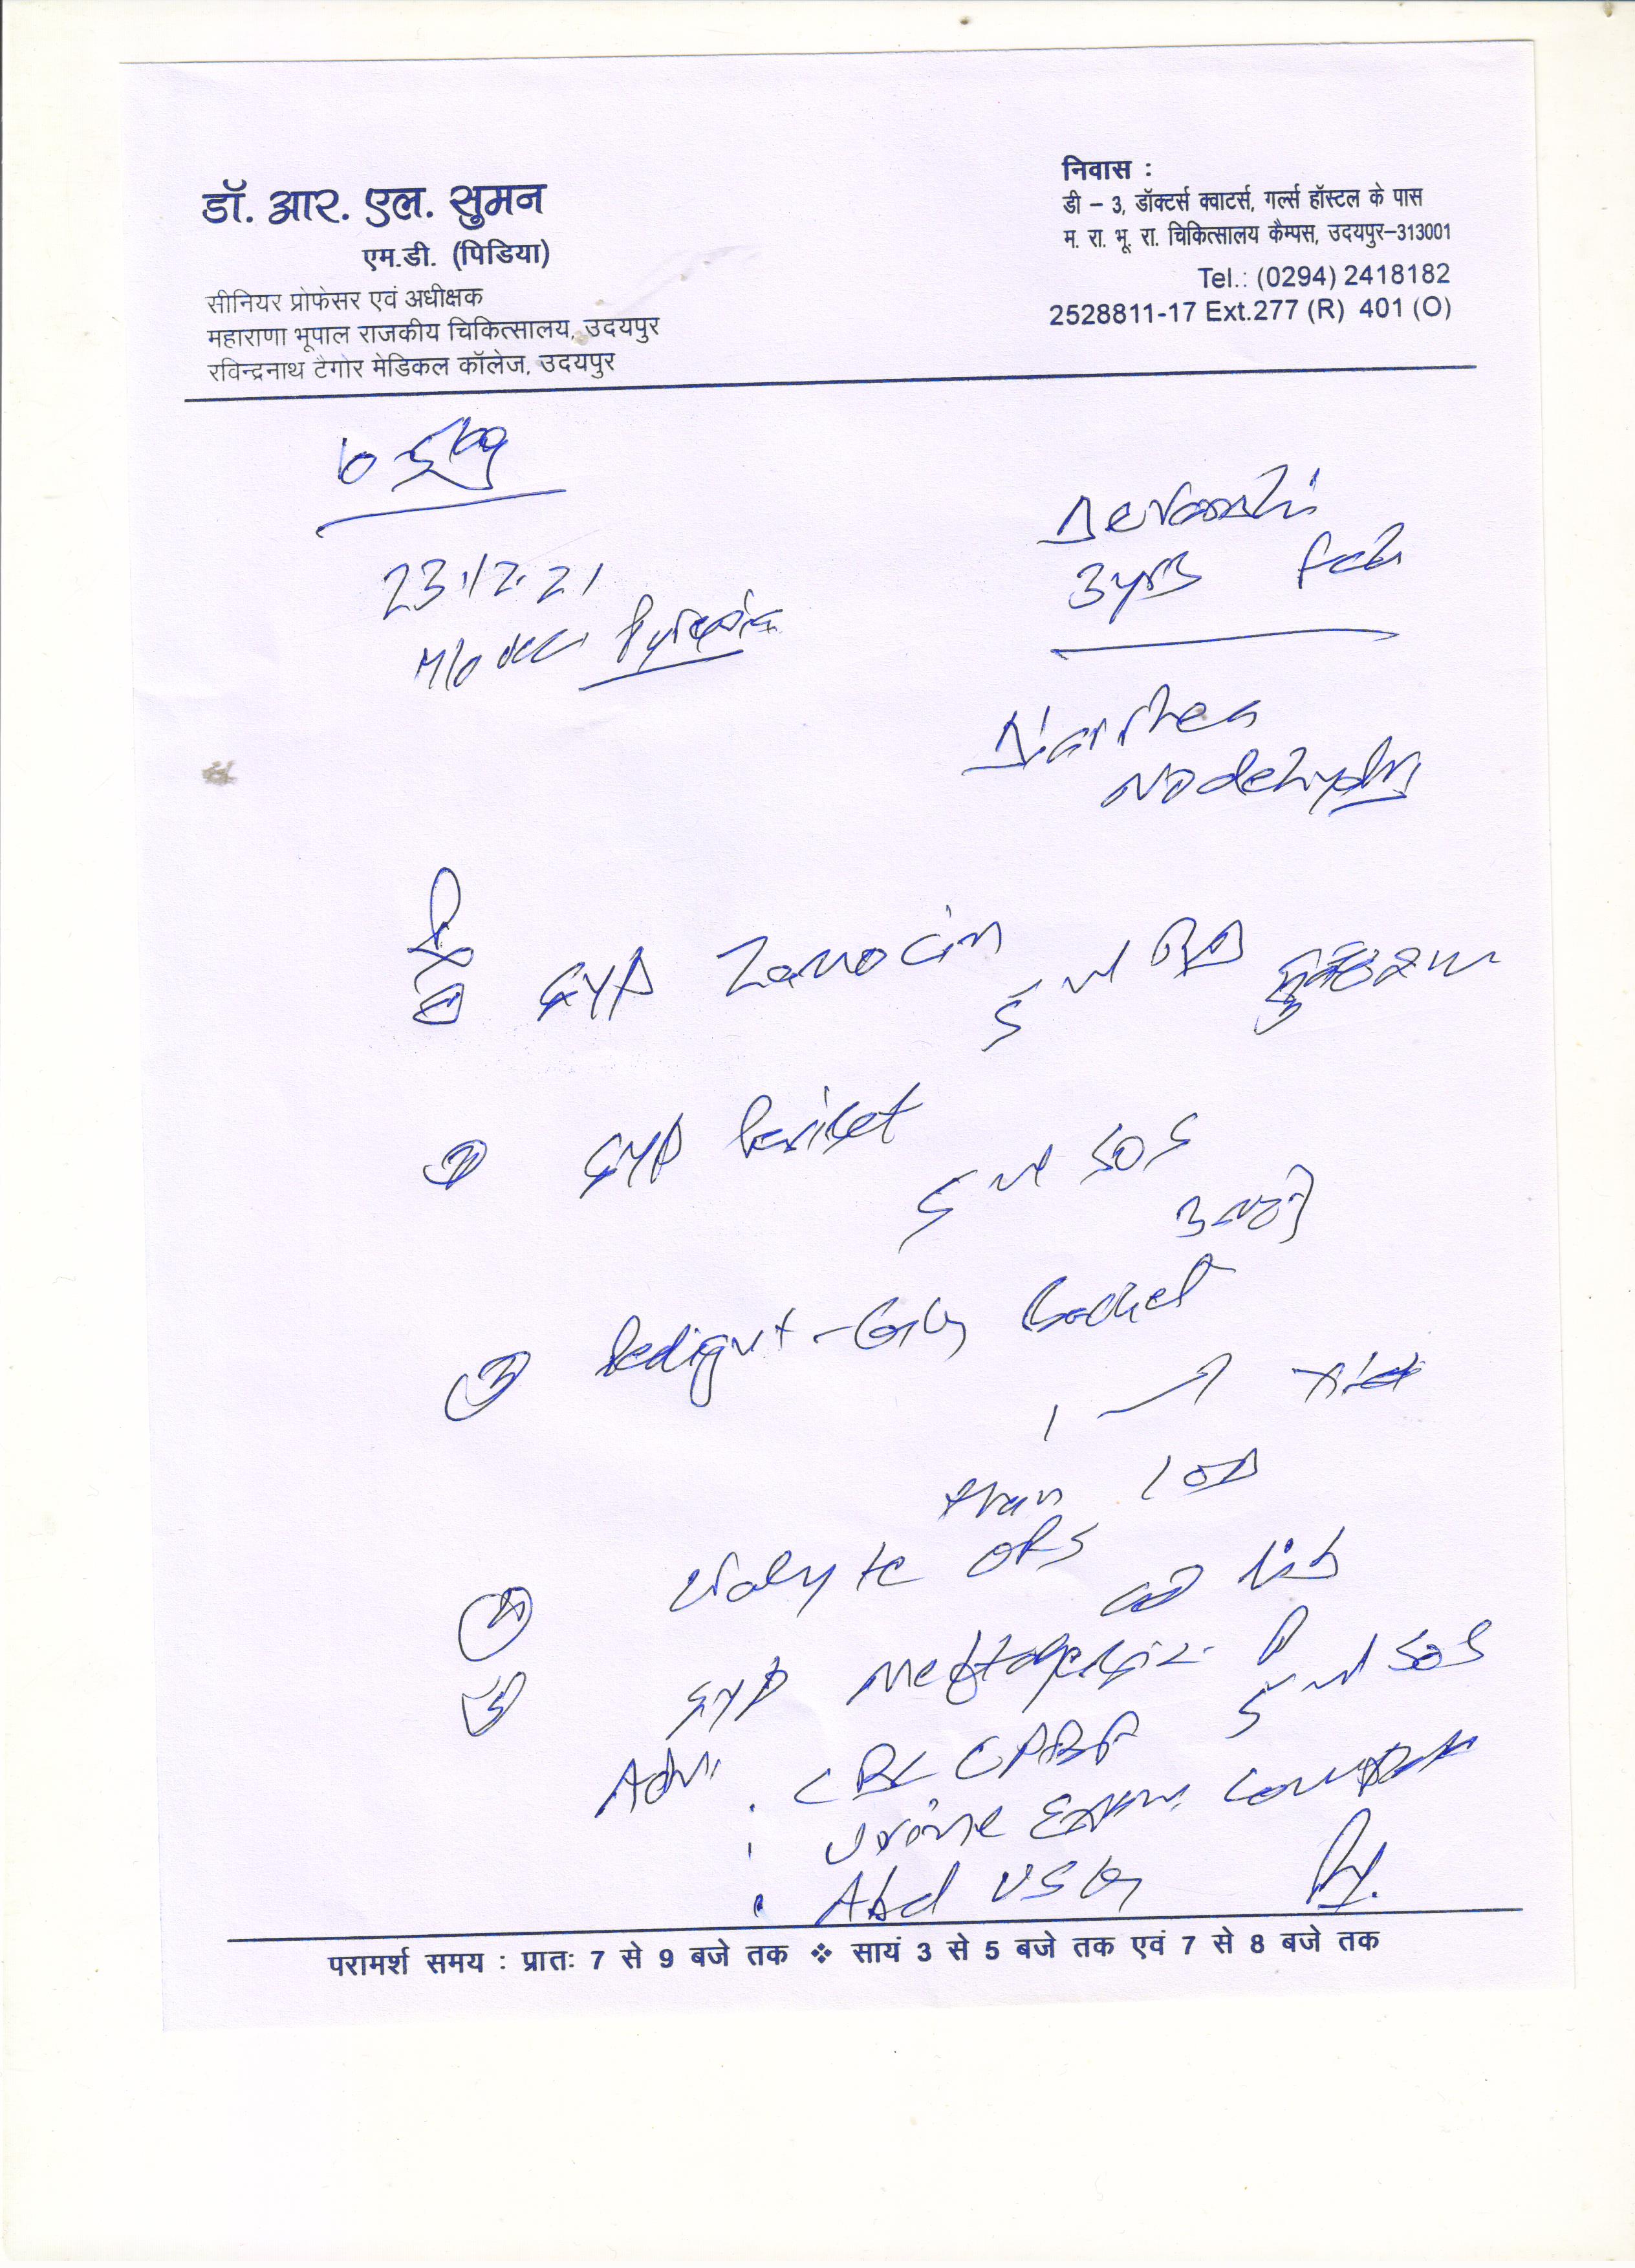 डॉ. आर. एल. सुमन
एम.डी. (पिडिया)
सीनियर प्रोफेसर एवं अधीक्षक
महाराणा भूपाल राजकीय चिकित्सालय, उदयपुर
रविन्द्रनाथ टैगोर मेडिकल कॉलेज, उदयपुर
निवास :
डी – 3, डॉक्टर्स क्वाटर्स, गर्ल्स हॉस्टल के पास
म. रा. भू. रा. चिकित्सालय कैम्पस, उदयपुर–313001
Tel.: (0294) 2418182
2528811-17 Ext.277 (R) 401 (O)
23.12.21
Devanshi
3yrs
Diarrhea
No dehydra
Syp Zanocin
5 ml BD
② Syp Periset
5 ml SOS
③ Pedigut
1
than 1 OD
④ Walyte ORS
ad lib
⑤ Syp
5 ml SOS
Adv. . CBC C PBF
. Urine Exam. Complete
. Abd USG
परामर्श समय : प्रातः 7 से 9 बजे तक ❖ सायं 3 से 5 बजे तक एवं 7 से 8 बजे तक